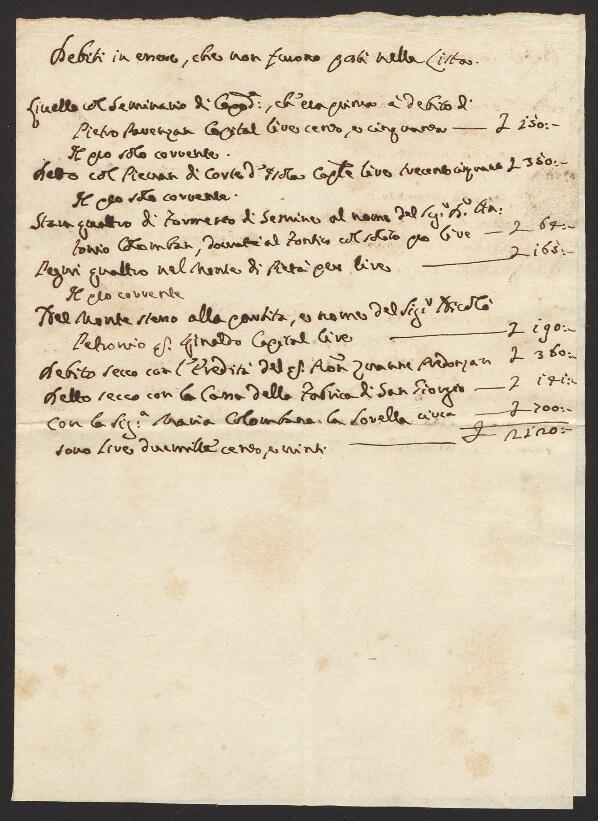 Debiti in essere, che non furono posti nella Lista.
Livello col Seminario di Capod:, ch'era prima à debito di
Pietro Pavenzan Capital lire cento, e cinquanta — L 150:-
Il pro solo corrente.
Detto col Pievan di Corte d'Isola Caple lire trecento cinquanta L 350:-
Il pro solo corrente.
Stara quattro di Formento di Semine al nome del Sigr Dr An:
tonio Colomban, dovute al Fontico col solito pro lire — L 64:-
Pegni quattro nel Monte di Pietà per lire — L 165:-
Il pro corrente
Nel Monte stesso alla partita, e nome del Sigr Nicolò
Petronio qm. Rinaldo Capital lire — L 190:-
Debito secco con l'Eredità del qm. Zuanne L 360:-
Detto secco con la Cassa della Fabrica di San Giorgio — L 141:-
Con la Siga Maria Colombana la Sorella circa — L 700:-
L 2120:-
sono Lire duemille cento, e vinti